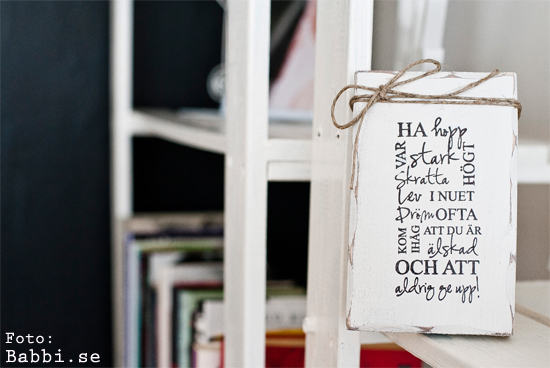 HA hopp
VAR stark
Skratta HÖGT
Lev I NUET
Dröm OFTA
KOM IHÅG ATT DU ÄR
älskad
OCH ATT
aldrig ge upp!
Foto:
Babbi.se